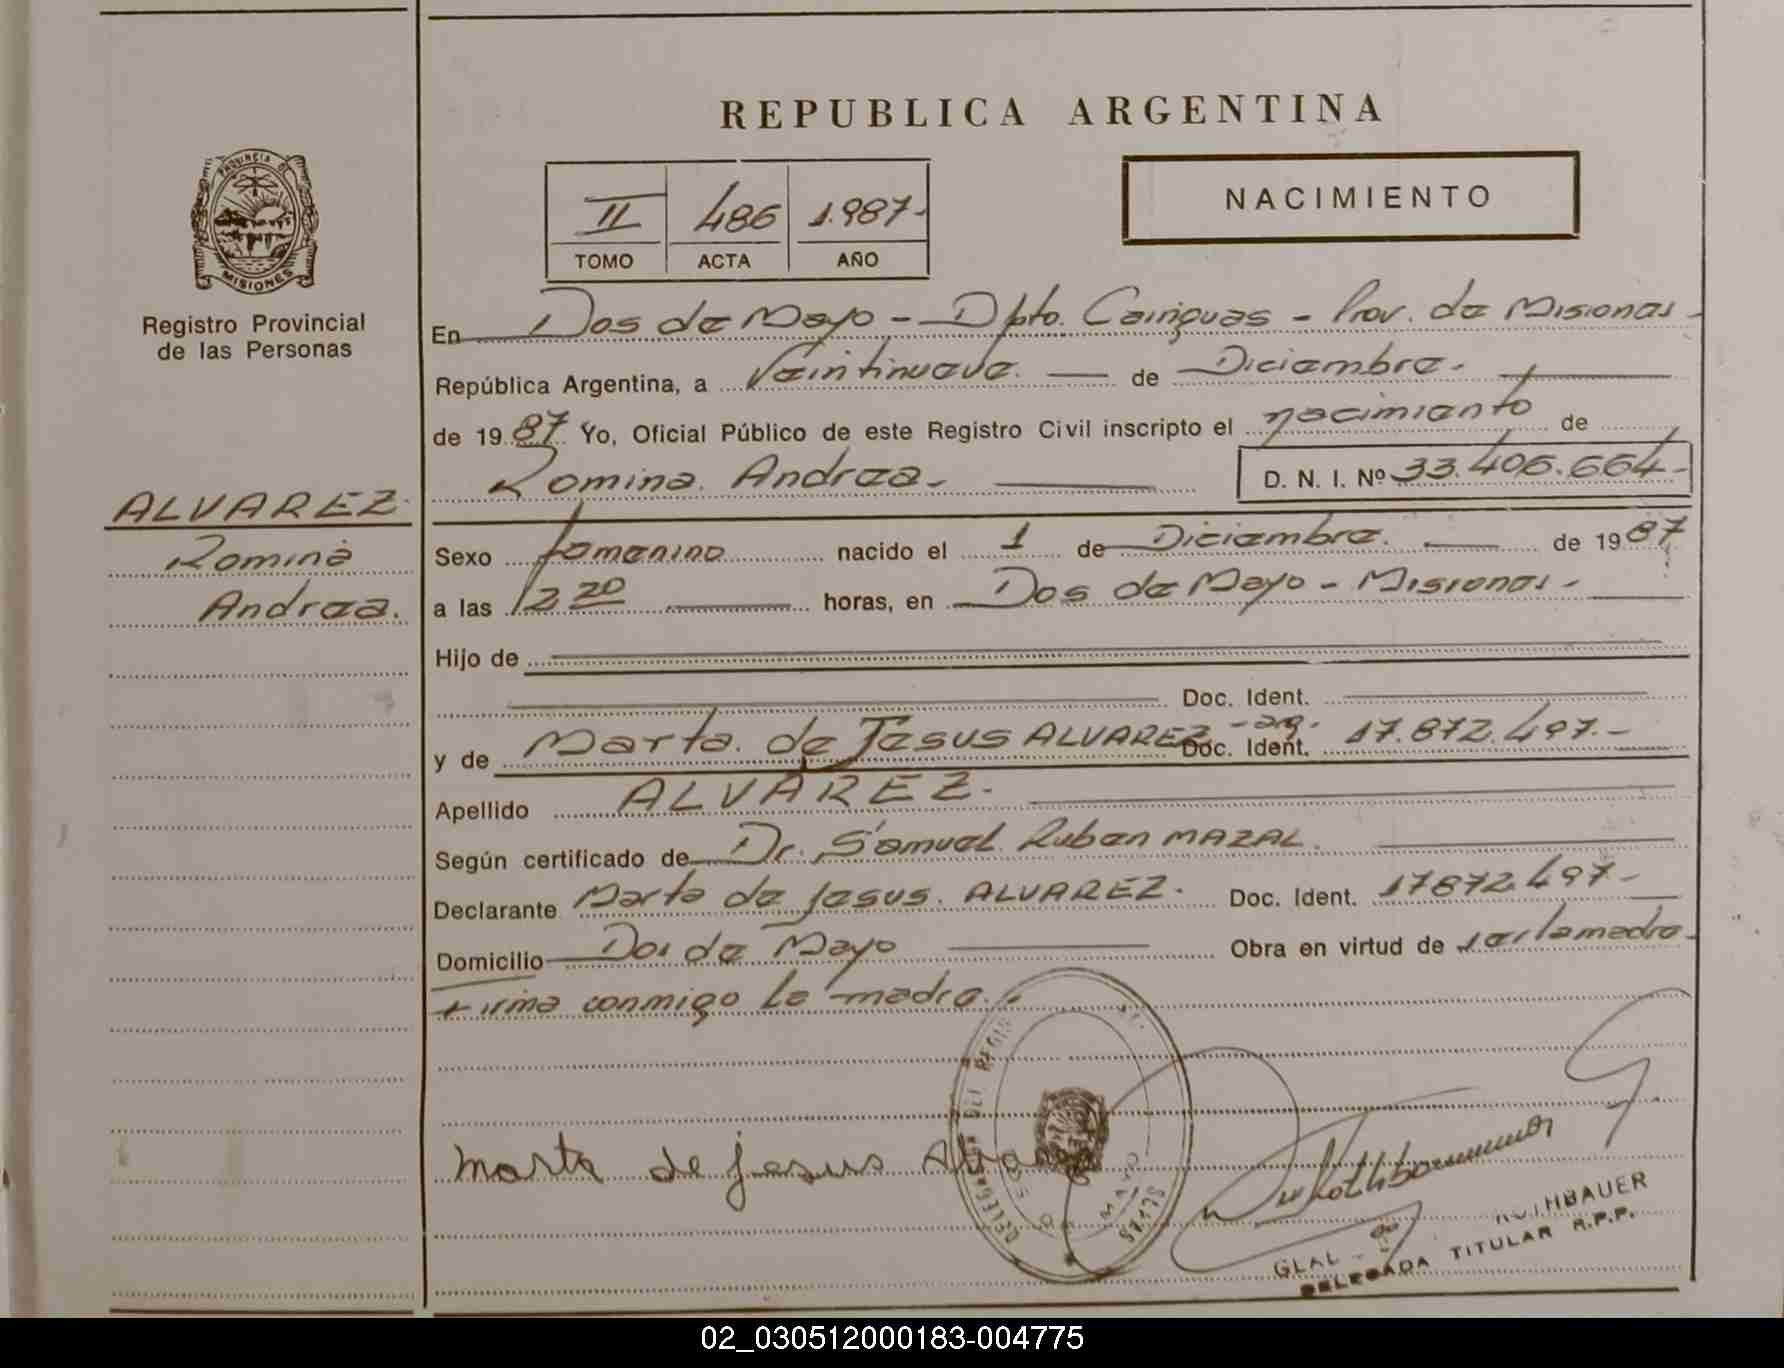 REPUBLICA ARGENTINA
PROVINCIA DE
MISIONES
Registro Provincial
de las Personas
II 486 1.987-
TOMO ACTA AÑO
NACIMIENTO
En Dos de Mayo - Dpto. Cainguas - Prov. de Misiones -
República Argentina, a Veintinueve. de Diciembre.
de 1987 Yo, Oficial Público de este Registro Civil inscripto el nacimiento de
Romina Andrea- D. N. I. Nº 33.406.664-
ALVAREZ.
Romina
Andrea.
Sexo femenino nacido el 1 de Diciembre. de 1987
a las 12 20 horas, en Dos de Mayo - Misiones -
Hijo de
Doc. Ident.
y de Marta de Jesus ALVAREZ -arg- Doc. Ident. 17.872.497.-
Apellido ALVAREZ.
Según certificado de Dr. Samuel Ruben MAZAL.
Declarante Marta de Jesus. ALVAREZ. Doc. Ident. 17872.497-
Domicilio Dos de Mayo Obra en virtud de ser la madre-
Firma conmigo la madre.
Marta de Jesus Alvarez
DELEGACION DEL REGIS
DOS DE MAYO
ROTHBAUER
DELEGADA TITULAR R.P.P.
02_030512000183-004775